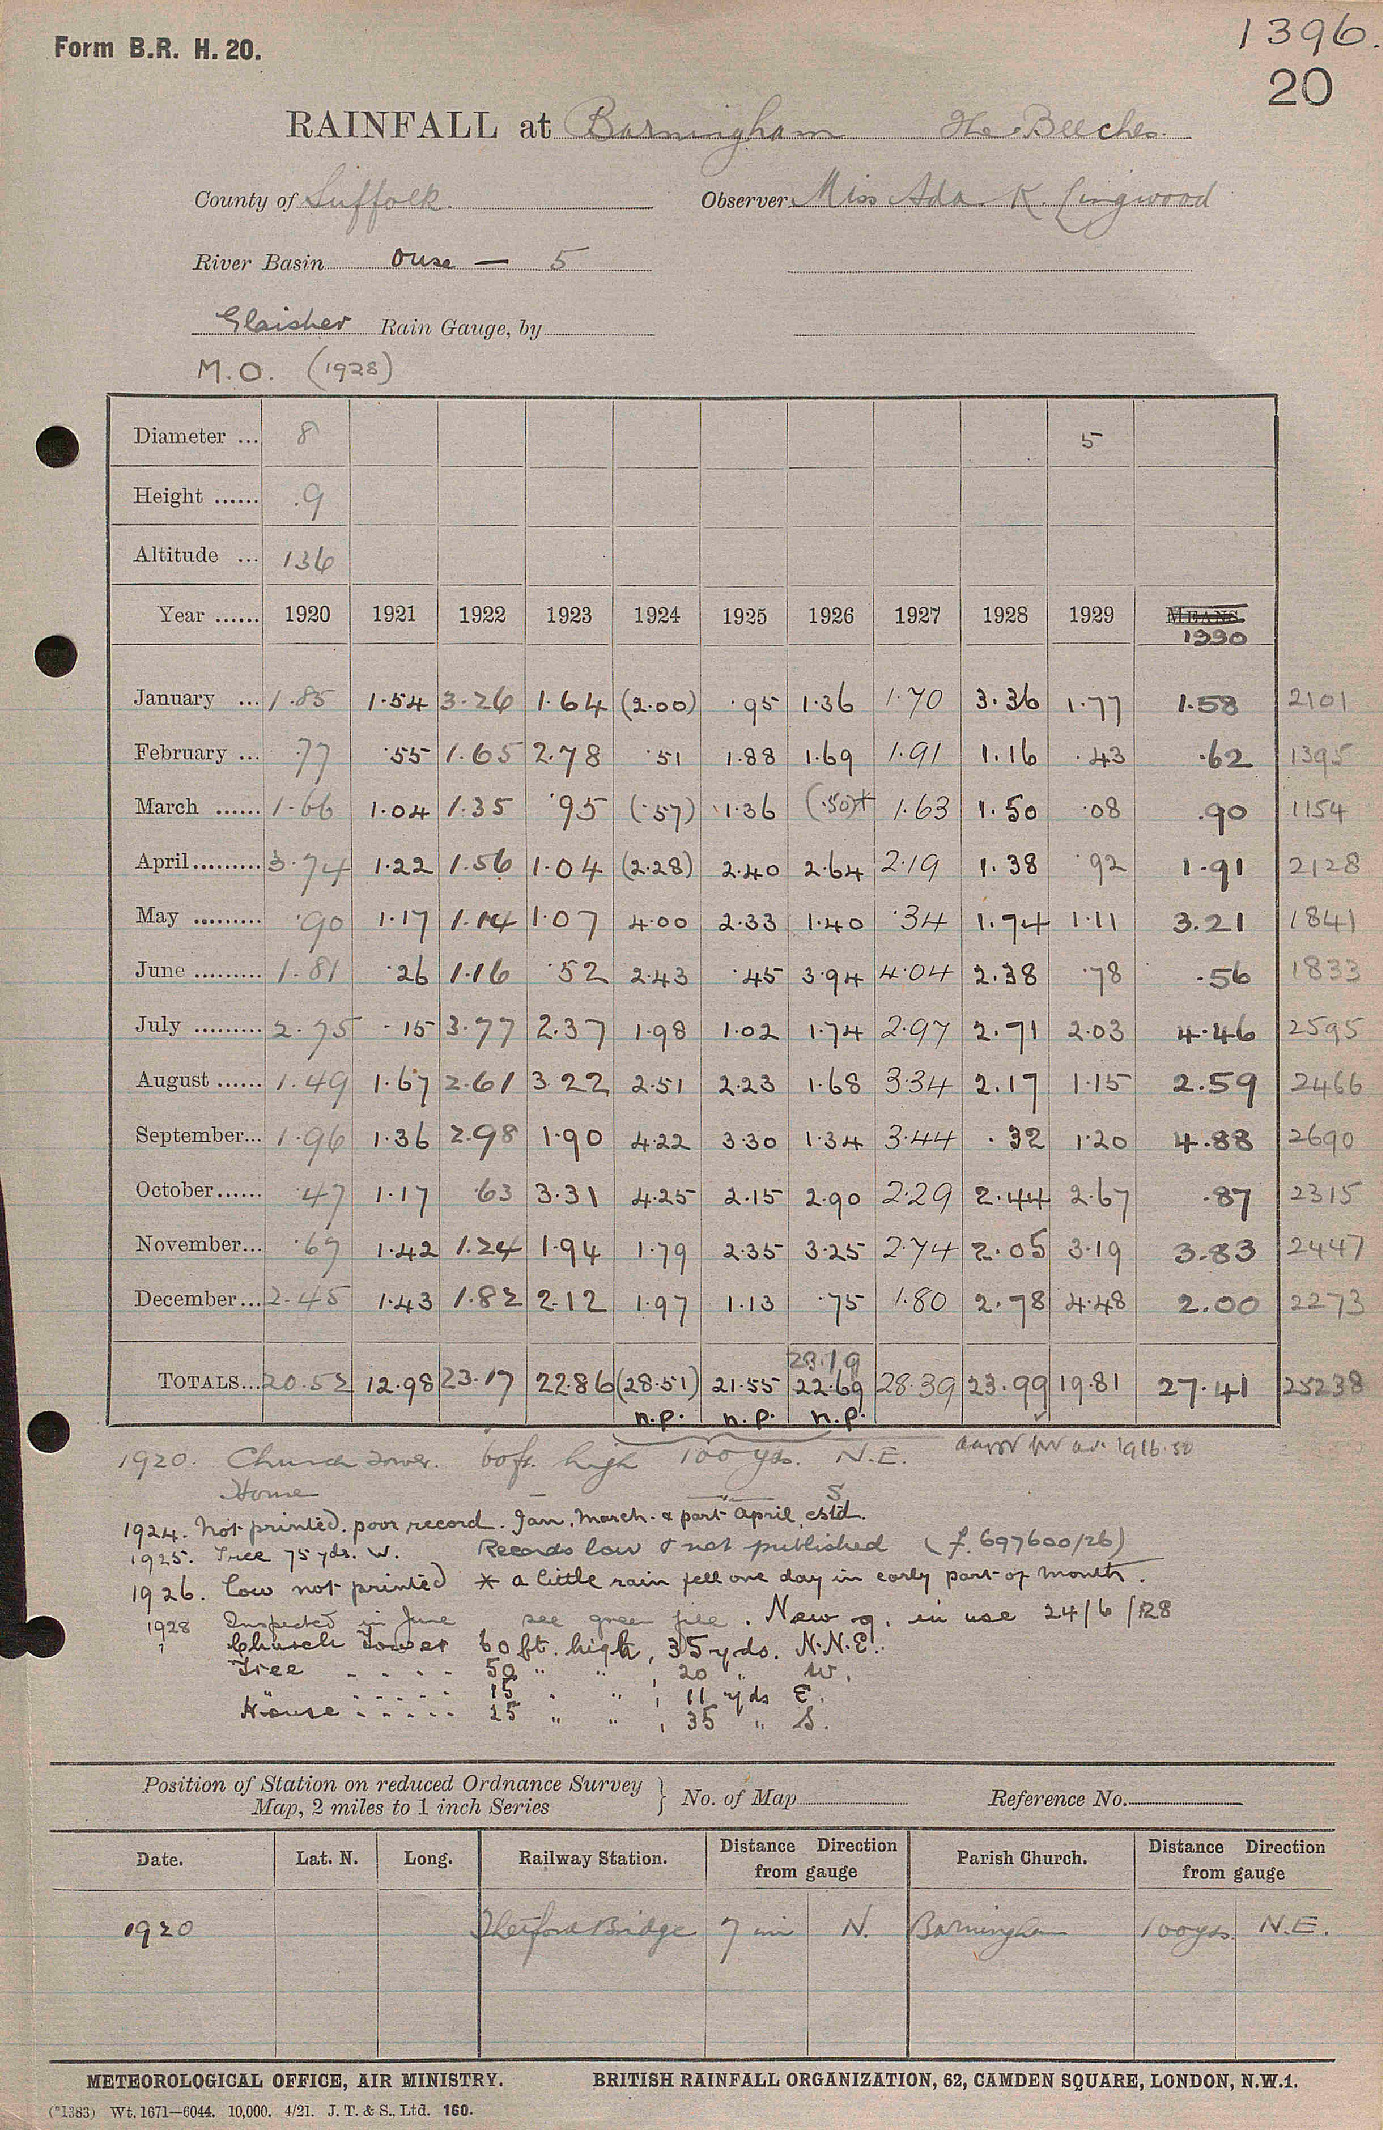 Form B.R. H. 20.
1396.
20
RAINFALL at Barningham The Beeches
County of Suffolk. Observer Miss Ada K. Lingwood
River Basin Ouse — 5
Glaisher Rain Gauge, by
M.O. (1928)
Diameter ... 8 5
Height ...... .9
Altitude ... 136
Year ...... 1920 1921 1922 1923 1924 1925 1926 1927 1928 1929 MEANS.
1930
January ... 1.85 1.54 3.26 1.64 (2.00) .95 1.36 1.70 3.36 1.77 1.58 2101
February ... .77 .55 1.65 2.78 .51 1.88 1.69 1.91 1.16 .43 .62 1395
March ...... 1.66 1.04 1.35 .95 (.57) 1.36 (.50)* 1.63 1.50 .08 .90 1154
April ......... 3.74 1.22 1.56 1.04 (2.28) 2.40 2.64 2.19 1.38 .92 1.91 2128
May ......... .90 1.17 1.14 1.07 4.00 2.33 1.40 .34 1.74 1.11 3.21 1841
June ......... 1.81 .26 1.16 .52 2.43 .45 3.94 4.04 2.38 .78 .56 1833
July ......... 2.75 .15 3.77 2.37 1.98 1.02 1.74 2.97 2.71 2.03 4.46 2595
August ...... 1.49 1.67 2.61 3.22 2.51 2.23 1.68 3.34 2.17 1.15 2.59 2466
September... 1.96 1.36 2.98 1.90 4.22 3.30 1.34 3.44 .32 1.20 4.88 2690
October...... .47 1.17 .63 3.31 4.25 2.15 2.90 2.29 2.44 2.67 .87 2315
November... .67 1.42 1.24 1.94 1.79 2.35 3.25 2.74 2.05 3.19 3.83 2447
December... 2.45 1.43 1.82 2.12 1.97 1.13 .75 1.80 2.78 4.48 2.00 2273
23.19
TOTALS... 20.52 12.98 23.17 22.86 (28.51) 21.55 22.69 28.39 23.99 19.81 27.41 25238
n.p. n.p. n.p.
1920. Church Tower. 60ft. high 100 yds. N.E. 1916-50
House — — „ — S
1924. Not printed. poor record. Jan, March. & part April, estd.
1925. Tree 75 yds. W. Records low & not published (f. 697600/26)
1926. Low not printed * a little rain fell one day in early part of month.
1928 Inspected in June see green file. New g. in use 24/6/28
Church Tower 60 ft. high, 35 yds. N.N.E.
Tree - - - - 50 " " , 20 " W.
" - - - - 15 " " , 11 yds E.
House - - - - 25 " " , 35 " S.
Position of Station on reduced Ordnance Survey Map, 2 miles to 1 inch Series } No. of Map Reference No.
Date. Lat. N. Long. Railway Station. Distance Direction from gauge Parish Church. Distance Direction from gauge
1920 Thetford Bridge 7 mi N. Barningham 100 yds. N.E.
METEOROLOGICAL OFFICE, AIR MINISTRY. BRITISH RAINFALL ORGANIZATION, 62, CAMDEN SQUARE, LONDON, N.W.1.
(*1383) Wt. 1671—6044. 10,000. 4/21. J. T. & S., Ltd. 160.